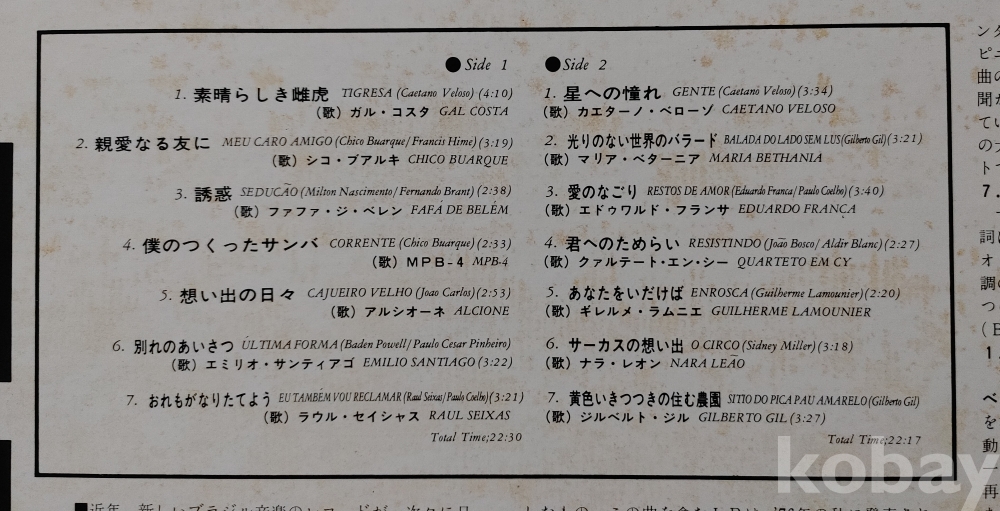 ● Side 1
1. 素晴らしき雌虎 TIGRESA (Caetano Veloso) (4:10)
(歌) ガル・コスタ GAL COSTA
2. 親愛なる友に MEU CARO AMIGO (Chico Buarque/Francis Hime) (3:19)
(歌) シコ・ブアルキ CHICO BUARQUE
3. 誘惑 SEDUCÃO (Milton Nascimento/Fernando Brant) (2:38)
(歌) ファファ・ジ・ベレン FAFÁ DE BELÉM
4. 僕のつくったサンバ CORRENTE (Chico Buarque) (2:33)
(歌) MPB-4 MPB-4
5. 想い出の日々 CAJUEIRO VELHO (Joao Carlos) (2:53)
(歌) アルシオーネ ALCIONE
6. 別れのあいさつ ÚLTIMA FORMA (Baden Powell/Paulo Cesar Pinheiro)
(歌) エミリオ・サンティアゴ EMILIO SANTIAGO (3:22)
7. おれもがなりたてよう EU TAMBÉM VOU RECLAMAR (Raul Seixas/Paulo Coelho) (3:21)
(歌) ラウル・セイシャス RAUL SEIXAS
Total Time;22:30
● Side 2
1. 星への憧れ GENTE (Caetano Veloso) (3:34)
(歌) カエターノ・ベローゾ CAETANO VELOSO
2. 光りのない世界のバラード BALADA DO LADO SEM LUS (Gilberto Gil) (3:21)
(歌) マリア・ベターニア MARIA BETHANIA
3. 愛のなごり RESTOS DE AMOR (Eduardo Franca/Paulo Coelho) (3:40)
(歌) エドゥワルド・フランサ EDUARDO FRANÇA
4. 君へのためらい RESISTINDO (João Bosco/Aldir Blanc) (2:27)
(歌) クァルテート・エン・シー QUARTETO EM CY
5. あなたをいだけば ENROSCA (Guilherme Lamounier) (2:20)
(歌) ギレルメ・ラムニエ GUILHERME LAMOUNIER
6. サーカスの想い出 O CIRCO (Sidney Miller) (3:18)
(歌) ナラ・レオン NARA LEÃO
7. 黄色いきつつきの住む農園 SITIO DO PICA PAU AMARELO (Gilberto Gil)
(歌) ジルベルト・ジル GILBERTO GIL (3:27)
Total Time;22:17
kobay